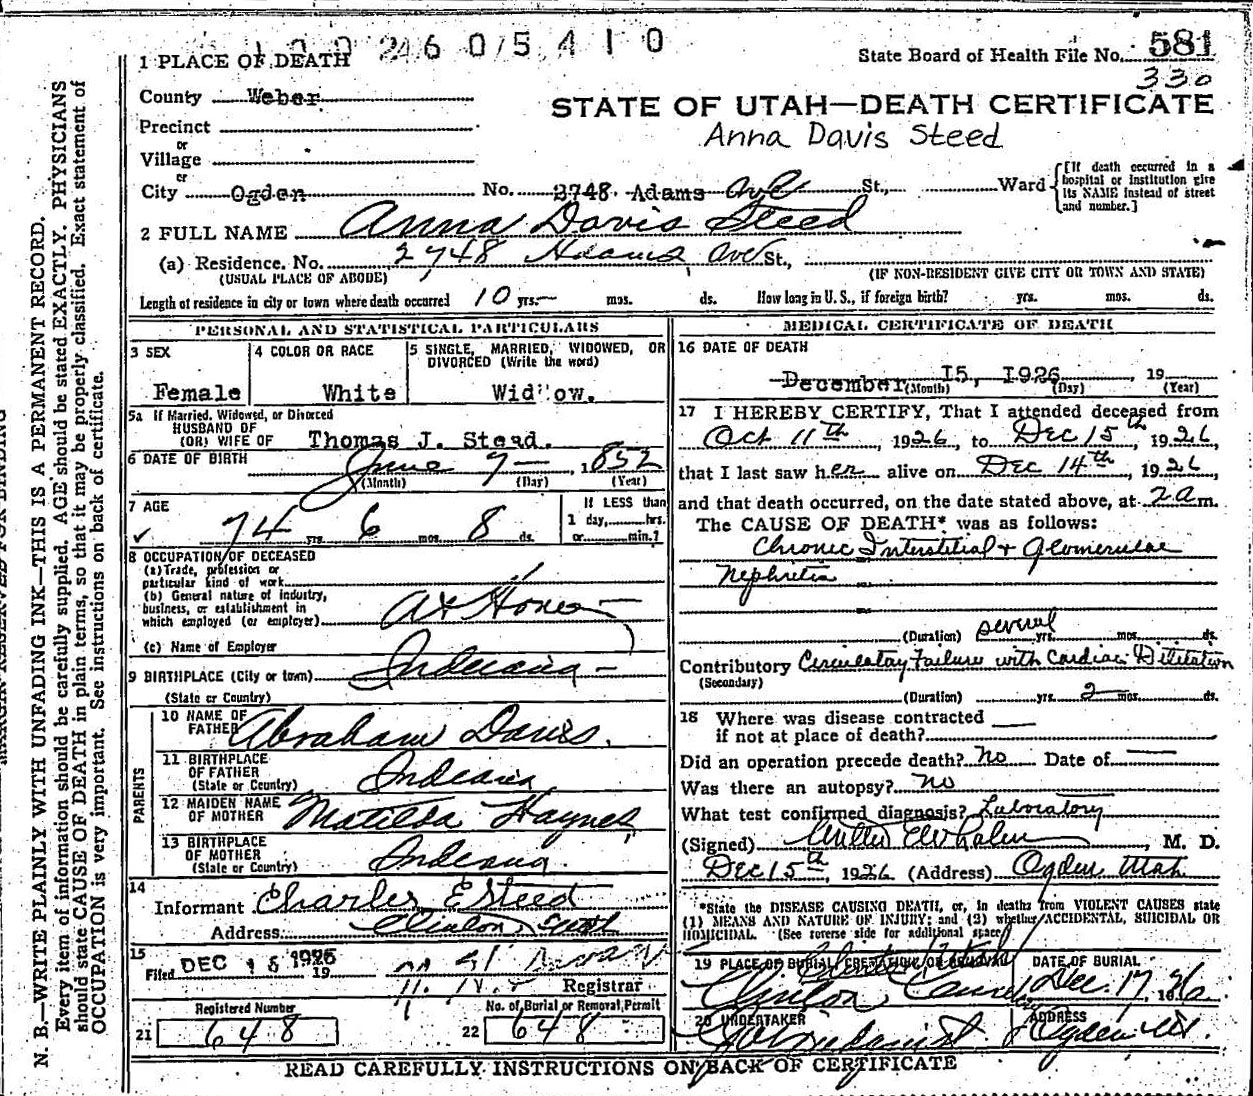 1 PLACE OF DEATH
State Board of Health File No. 581
330
County Weber
STATE OF UTAH—DEATH CERTIFICATE
Precinct
Anna Davis Steed
or
Village
or
City Ogden No. 2748 Adams Ave St., Ward
[If death occurred in a hospital or institution give its NAME instead of street and number.]
2 FULL NAME Anna Davis Steed
(a) Residence. No. 2748 Adams Ave St.,
(USUAL PLACE OF ABODE) (IF NON-RESIDENT GIVE CITY OR TOWN AND STATE)
Length of residence in city or town where death occurred 10 yrs.— mos. ds. How long in U. S., if foreign birth? yrs. mos. ds.
PERSONAL AND STATISTICAL PARTICULARS
3 SEX
Female
4 COLOR OR RACE
White
5 SINGLE, MARRIED, WIDOWED, OR
DIVORCED (Write the word)
Widow.
5a If Married, Widowed, or Divorced
HUSBAND OF
(OR) WIFE OF Thomas J. Steed.
6 DATE OF BIRTH June 7— 1852
(Month) (Day) (Year)
7 AGE
74 yrs 6 mos. 8 ds.
If LESS than
1 day,......hrs.
or......min.?
8 OCCUPATION OF DECEASED
(a) Trade, profession or
particular kind of work
(b) General nature of industry,
business, or establishment in
which employed (or employer) At Home—
(c) Name of Employer
9 BIRTHPLACE (City or town) Indiana—
(State or Country)
PARENTS
10 NAME OF
FATHER Abraham Davis.
11 BIRTHPLACE
OF FATHER Indiana
(State or Country)
12 MAIDEN NAME
OF MOTHER Matilda Haynes
13 BIRTHPLACE
OF MOTHER Indiana.
(State or Country)
14
Informant Charles E Steed
Address Clinton, Utah
15
Filed DEC 16 1926 19
Registrar
Registered Number
21 648
No. of Burial or Removal Permit
22 648
MEDICAL CERTIFICATE OF DEATH
16 DATE OF DEATH
December 15, 1926, 19
(Month) (Day) (Year)
17 I HEREBY CERTIFY, That I attended deceased from
Oct 11th, 1926, to Dec 15th, 1926,
that I last saw her alive on Dec 14th, 1926
and that death occurred, on the date stated above, at 2 a m.
The CAUSE OF DEATH* was as follows:
Chronic Interstitial + Glomerular
Nephritis
(Duration) several yrs. mos. ds.
Contributory Circulatory Failure with Cardiac Dilitation
(Secondary)
(Duration) yrs. 2 mos. ds.
18 Where was disease contracted
if not at place of death?
Did an operation precede death? No Date of
Was there an autopsy? no
What test confirmed diagnosis? Laboratory
(Signed) M. D.
Dec 15th, 1926 (Address) Ogden Utah
*State the DISEASE CAUSING DEATH, or, in deaths from VIOLENT CAUSES state
(1) MEANS AND NATURE OF INJURY; and (2) whether ACCIDENTAL, SUICIDAL OR
HOMICIDAL. (See reverse side for additional space)
19 PLACE OF BURIAL, CREMATION, OR REMOVAL
Clinton
DATE OF BURIAL
Dec. 17, 1926
20 UNDERTAKER
ADDRESS
Ogden Ut.
READ CAREFULLY INSTRUCTIONS ON BACK OF CERTIFICATE
N. B.—WRITE PLAINLY WITH UNFADING INK—THIS IS A PERMANENT RECORD.
Every item of information should be carefully supplied. AGE should be stated EXACTLY. PHYSICIANS
should state CAUSE OF DEATH in plain terms, so that it may be properly classified. Exact statement of
OCCUPATION is very important. See instructions on back of certificate.